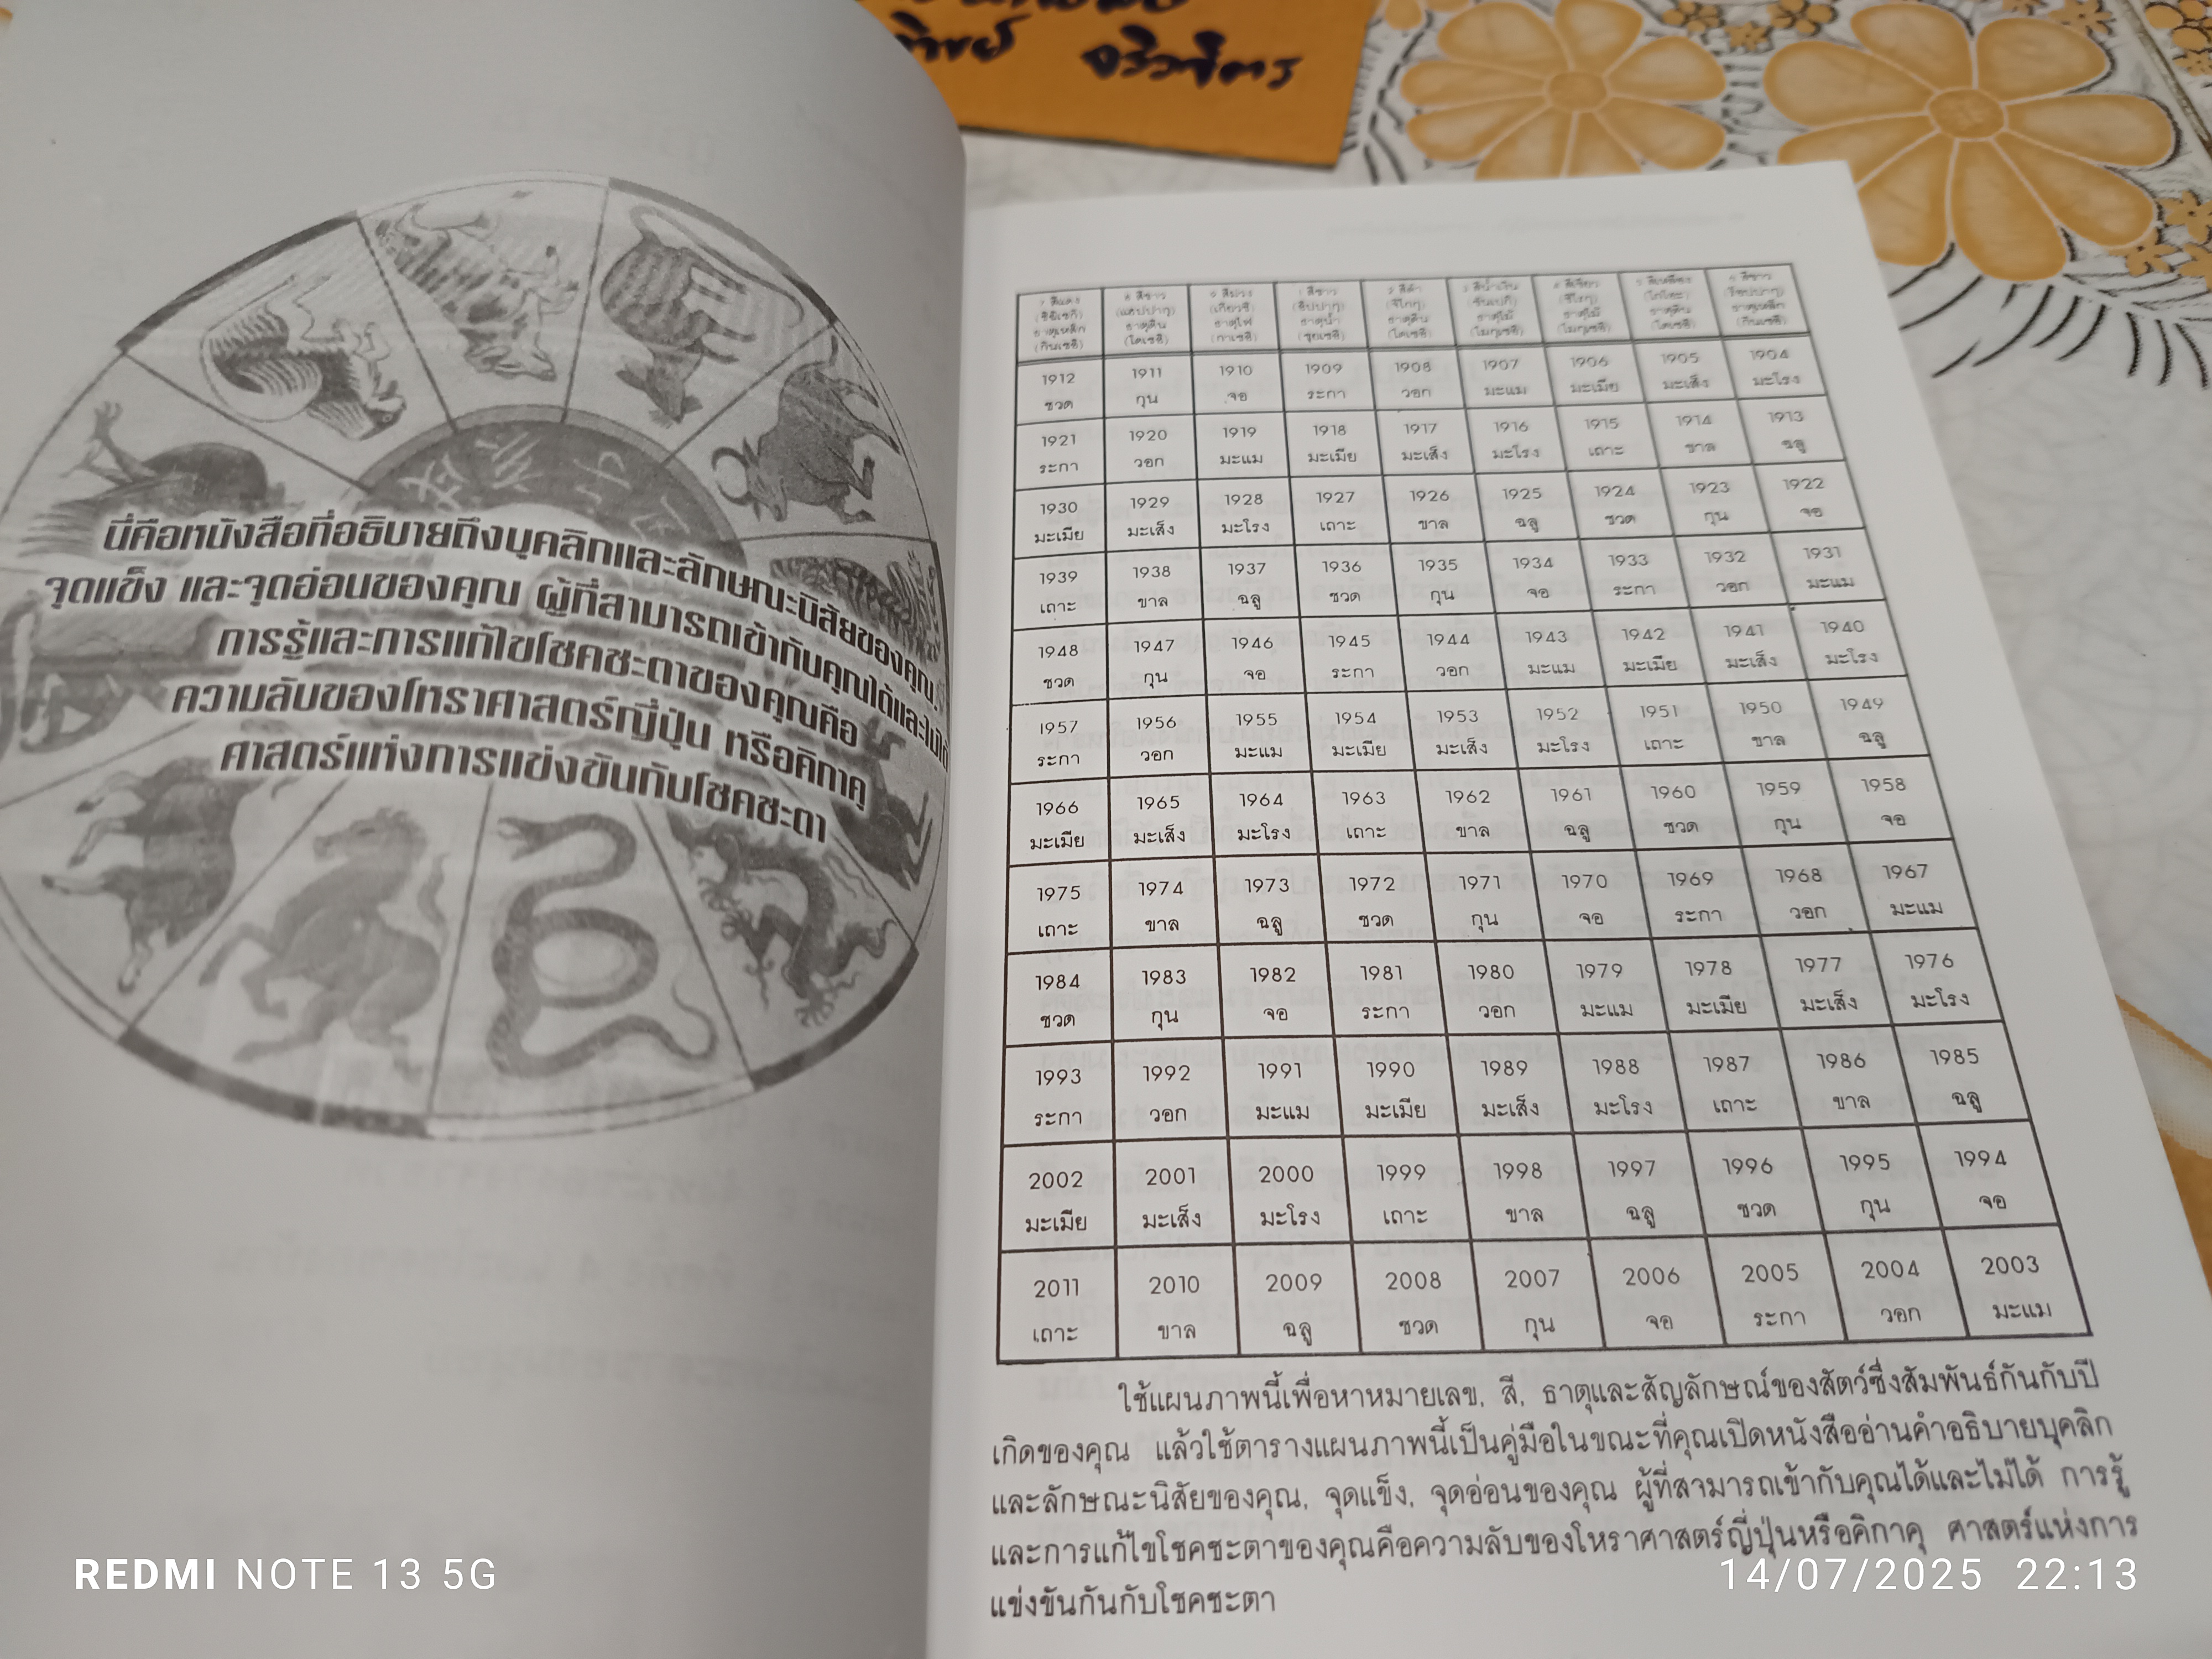 จริวจิตร
นี่คือหนังสือที่อธิบายถึงบุคลิกและลักษณะนิสัยของคุณ,
จุดแข็ง และจุดอ่อนของคุณ ผู้ที่สามารถเข้ากับคุณได้และไม่ได้
การรู้และการแก้ไขโชคชะตาของคุณคือ
ความลับของโหราศาสตร์ญี่ปุ่น หรือคิกาคุ
ศาสตร์แห่งการแข่งขันกับโชคชะตา
1912 1911 1910 1909 1908 1907 1906 1905 1904
ชวด กุน จอ ระกา วอก มะแม มะเมีย มะเส็ง มะโรง
1921 1920 1919 1918 1917 1916 1915 1914 1913
ระกา วอก มะแม มะเมีย มะเส็ง มะโรง เถาะ ขาล ฉลู
1930 1929 1928 1927 1926 1925 1924 1923 1922
มะเมีย มะเส็ง มะโรง เถาะ ขาล ฉลู ชวด กุน จอ
1939 1938 1937 1936 1935 1934 1933 1932 1931
เถาะ ขาล ฉลู ชวด กุน จอ ระกา วอก มะแม
1948 1947 1946 1945 1944 1943 1942 1941 1940
ชวด กุน จอ ระกา วอก มะแม มะเมีย มะเส็ง มะโรง
1957 1956 1955 1954 1953 1952 1951 1950 1949
ระกา วอก มะแม มะเมีย มะเส็ง มะโรง เถาะ ขาล ฉลู
1966 1965 1964 1963 1962 1961 1960 1959 1958
มะเมีย มะเส็ง มะโรง เถาะ ขาล ฉลู ชวด กุน จอ
1975 1974 1973 1972 1971 1970 1969 1968 1967
เถาะ ขาล ฉลู ชวด กุน จอ ระกา วอก มะแม
1984 1983 1982 1981 1980 1979 1978 1977 1976
ชวด กุน จอ ระกา วอก มะแม มะเมีย มะเส็ง มะโรง
1993 1992 1991 1990 1989 1988 1987 1986 1985
ระกา วอก มะแม มะเมีย มะเส็ง มะโรง เถาะ ขาล ฉลู
2002 2001 2000 1999 1998 1997 1996 1995 1994
มะเมีย มะเส็ง มะโรง เถาะ ขาล ฉลู ชวด กุน จอ
2011 2010 2009 2008 2007 2006 2005 2004 2003
เถาะ ขาล ฉลู ชวด กุน จอ ระกา วอก มะแม
ใช้แผนภาพนี้เพื่อหาหมายเลข, สี, ธาตุและสัญลักษณ์ของสัตว์ซึ่งสัมพันธ์กันกับปี
เกิดของคุณ แล้วใช้ตารางแผนภาพนี้เป็นคู่มือในขณะที่คุณเปิดหนังสืออ่านคำอธิบายบุคลิก
และลักษณะนิสัยของคุณ, จุดแข็ง, จุดอ่อนของคุณ ผู้ที่สามารถเข้ากับคุณได้และไม่ได้ การรู้
และการแก้ไขโชคชะตาของคุณคือความลับของโหราศาสตร์ญี่ปุ่นหรือคิกาคุ ศาสตร์แห่งการ
แข่งขันกันกับโชคชะตา
REDMI NOTE 13 5G
14/07/2025 22:13